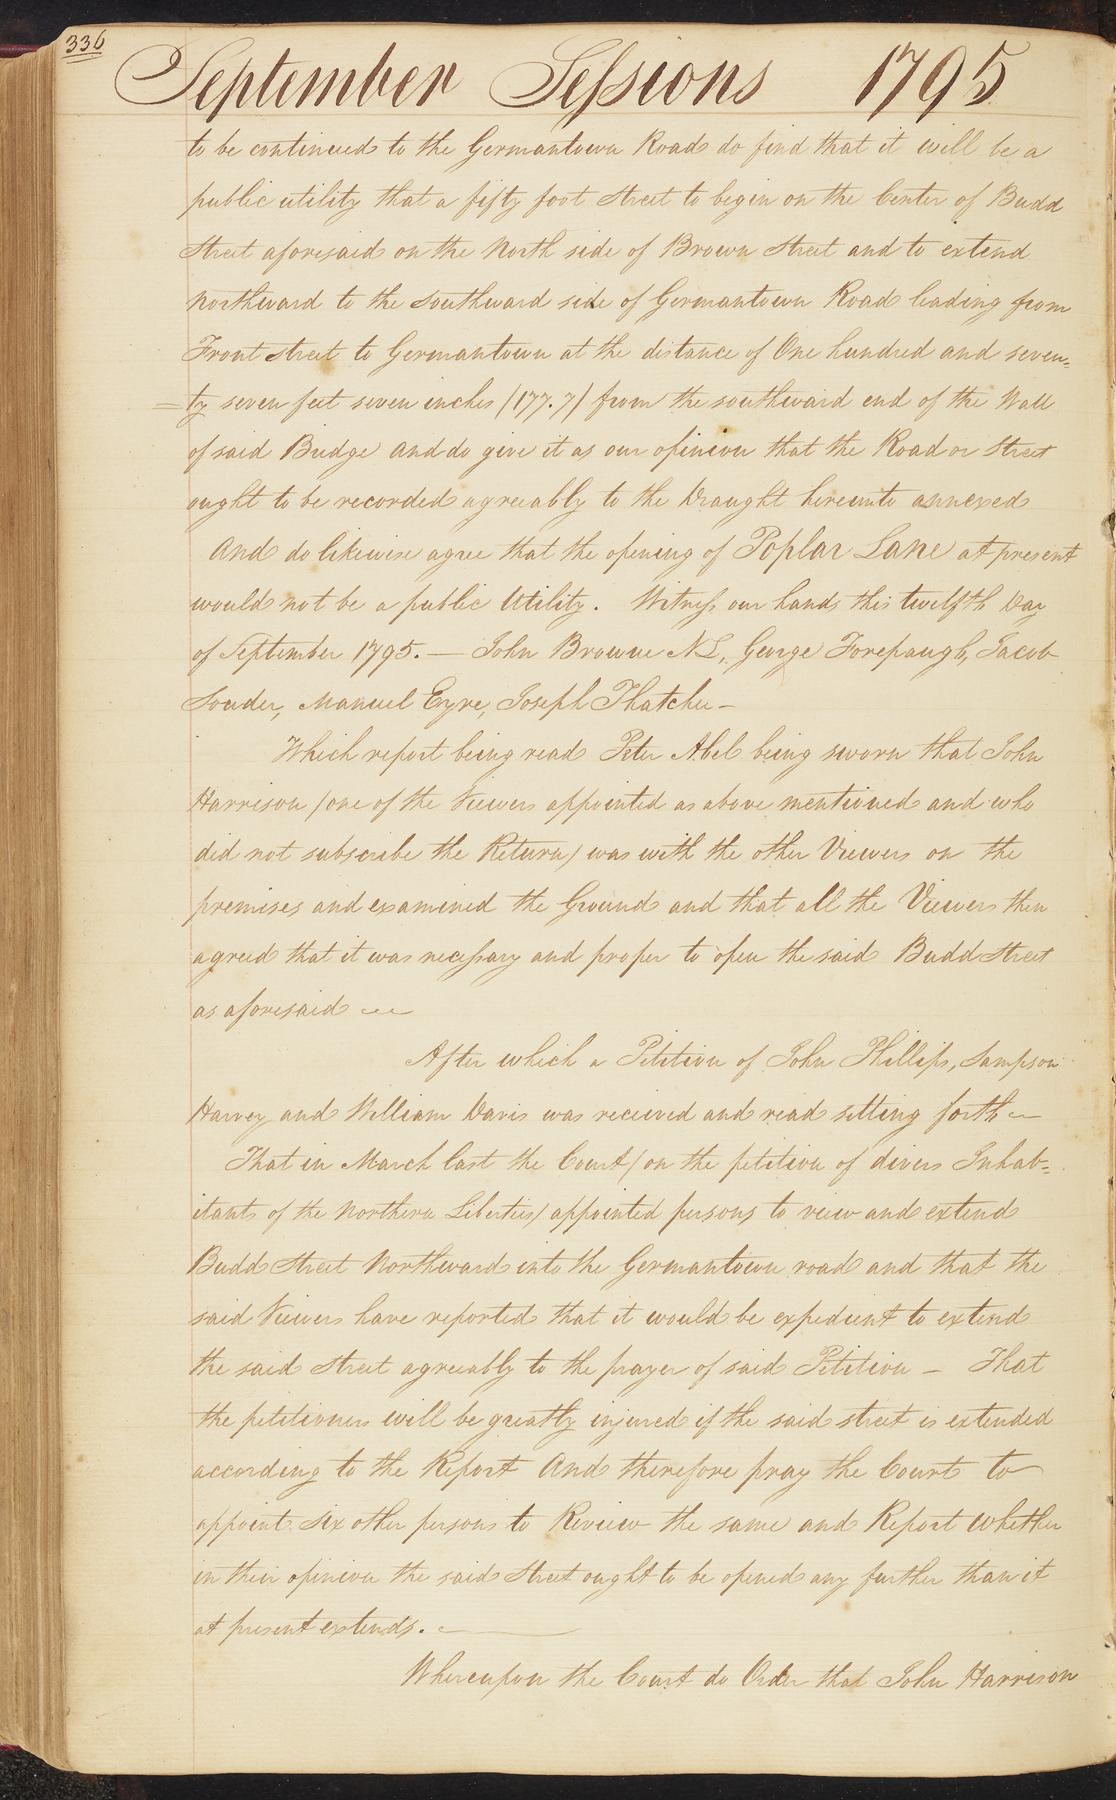 336
September Sessions 1795
to be continued to the Germantown Road do find that it will be a
public utility that a fifty foot Street to begin on the Center of Budd
Street aforesaid on the North side of Brown Street and to extend
Northward to the Southward side of Germantown Road leading from
Front street to Germantown at the distance of One hundred and seven=
=ty seven feet seven inches (177.7) from the southward end of the Wall
of said Bridge and do give it as our opinion that the Road or Street
ought to be recorded agreeably to the Draught hereunto annexed
And do likewise agree that the opening of Poplar Lane at present
would not be a public Utility. Witness our hands this twelfth Day
of September 1795. — John Browne NL, George Forepaugh, Jacob
Souder, Manuel Eyre, Joseph Thatcher —
Which report being read Peter Abel being sworn that John
Harrison (one of the Viewers appointed as above mentioned and who
did not subscribe the Return) was with the other Viewers on the
premises and examined the Ground and that all the Viewers then
agreed that it was necessary and proper to open the said Budd Street
as aforesaid —
After which a Petition of John Phillips, Sampson
Harvey and William Davis was received and read setting forth —
That in March last the Court (on the petition of divers Inhab=
itants of the Northern Liberties) appointed persons to view and extend
Budd Street Northward into the Germantown road and that the
said Viewers have reported that it would be expedient to extend
the said Street agreeably to the prayer of said Petition — That
the petitioners will be greatly injured if the said street is extended
according to the Report And therefore pray the Court to
appoint six other persons to Review the same and Report whether
in their opinion the said Street ought to be opened any further than it
at present extends. —
Whereupon the Court do Order that John Harrison